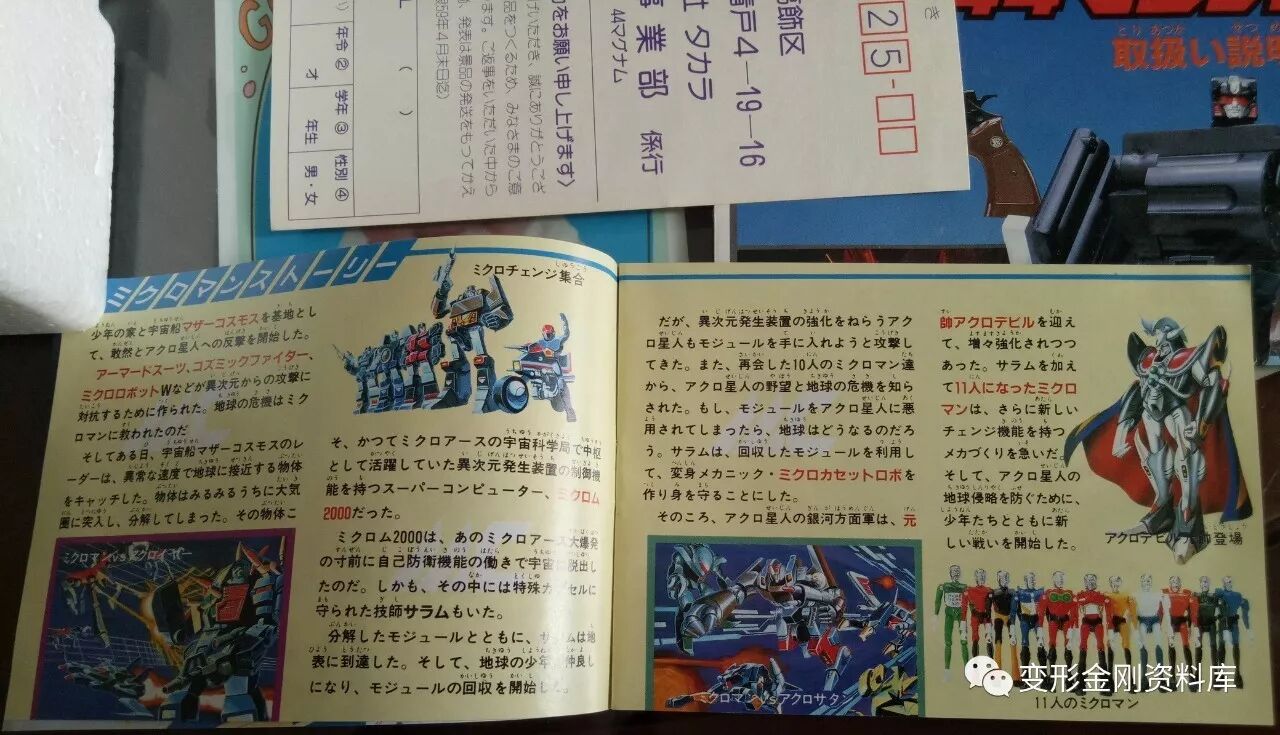 き
25-□□
葛飾区
青戸4-19-16
社 タカラ
事業部 係行
44マグナム
をお願い申し上げます〉
年令②
才
学年③
年生
性別④
男・女
( )
とり あつか せつ
取扱い説明
ミクロマンストーリー
少年の家と宇宙船マザーコスモスを基地とし
て、敢然とアクロ星人への反撃を開始した。
アーマードスーツ、コスミックファイター、
ミクロロボットWなどが異次元からの攻撃に
対抗するために作られた。地球の危機はミク
ロマンに救われたのだ
そしてある日、宇宙船マザーコスモスのレ
ーダーは、異常な速度で地球に接近する物体
をキャッチした。物体はみるみるうちに大気
圏に突入し、分解してしまった。その物体こ
ミクロマンvsアクロイヤー
ミクロチェンジ集合
そ、かつてミクロアースの宇宙科学局で中枢
として活躍していた異次元発生装置の制御機
能を持つスーパーコンピューター、ミクロム
2000だった。
ミクロム2000は、あのミクロアース大爆発
の寸前に自己防衛機能の働きで宇宙に脱出し
たのだ。しかも、その中には特殊カプセルに
守られた技師サラムもいた。
分解したモジュールとともに、サラムは地
表に到達した。そして、地球の少年と仲良し
になり、モジュールの回収を開始した。
だが、異次元発生装置の強化をねらうアク
ロ星人もモジュールを手に入れようと攻撃し
てきた。また、再会した10人のミクロマン達
から、アクロ星人の野望と地球の危機を知ら
された。もし、モジュールをアクロ星人に悪
用されてしまったら、地球はどうなるのだろ
う。サラムは、回収したモジュールを利用し
て、変身メカニック・ミクロカセットロボを
作り身を守ることにした。
そのころ、アクロ星人の銀河方面軍は、元
ミクロマンvsアクロサタン
帥アクロデビルを迎え
て、増々強化されつつ
あった。サラムを加え
て11人になったミクロ
マンは、さらに新しい
チェンジ機能を持つ
メカづくりを急いだ。
そして、アクロ星人の
地球侵略を防ぐために、
少年たちとともに新
しい戦いを開始した。
アクロデビル元帥登場
11人のミクロマン
变形金刚资料库